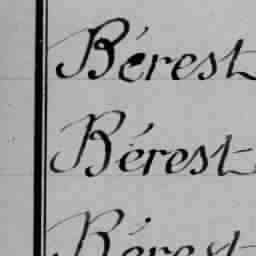 Bérest
Bérest
Bérest